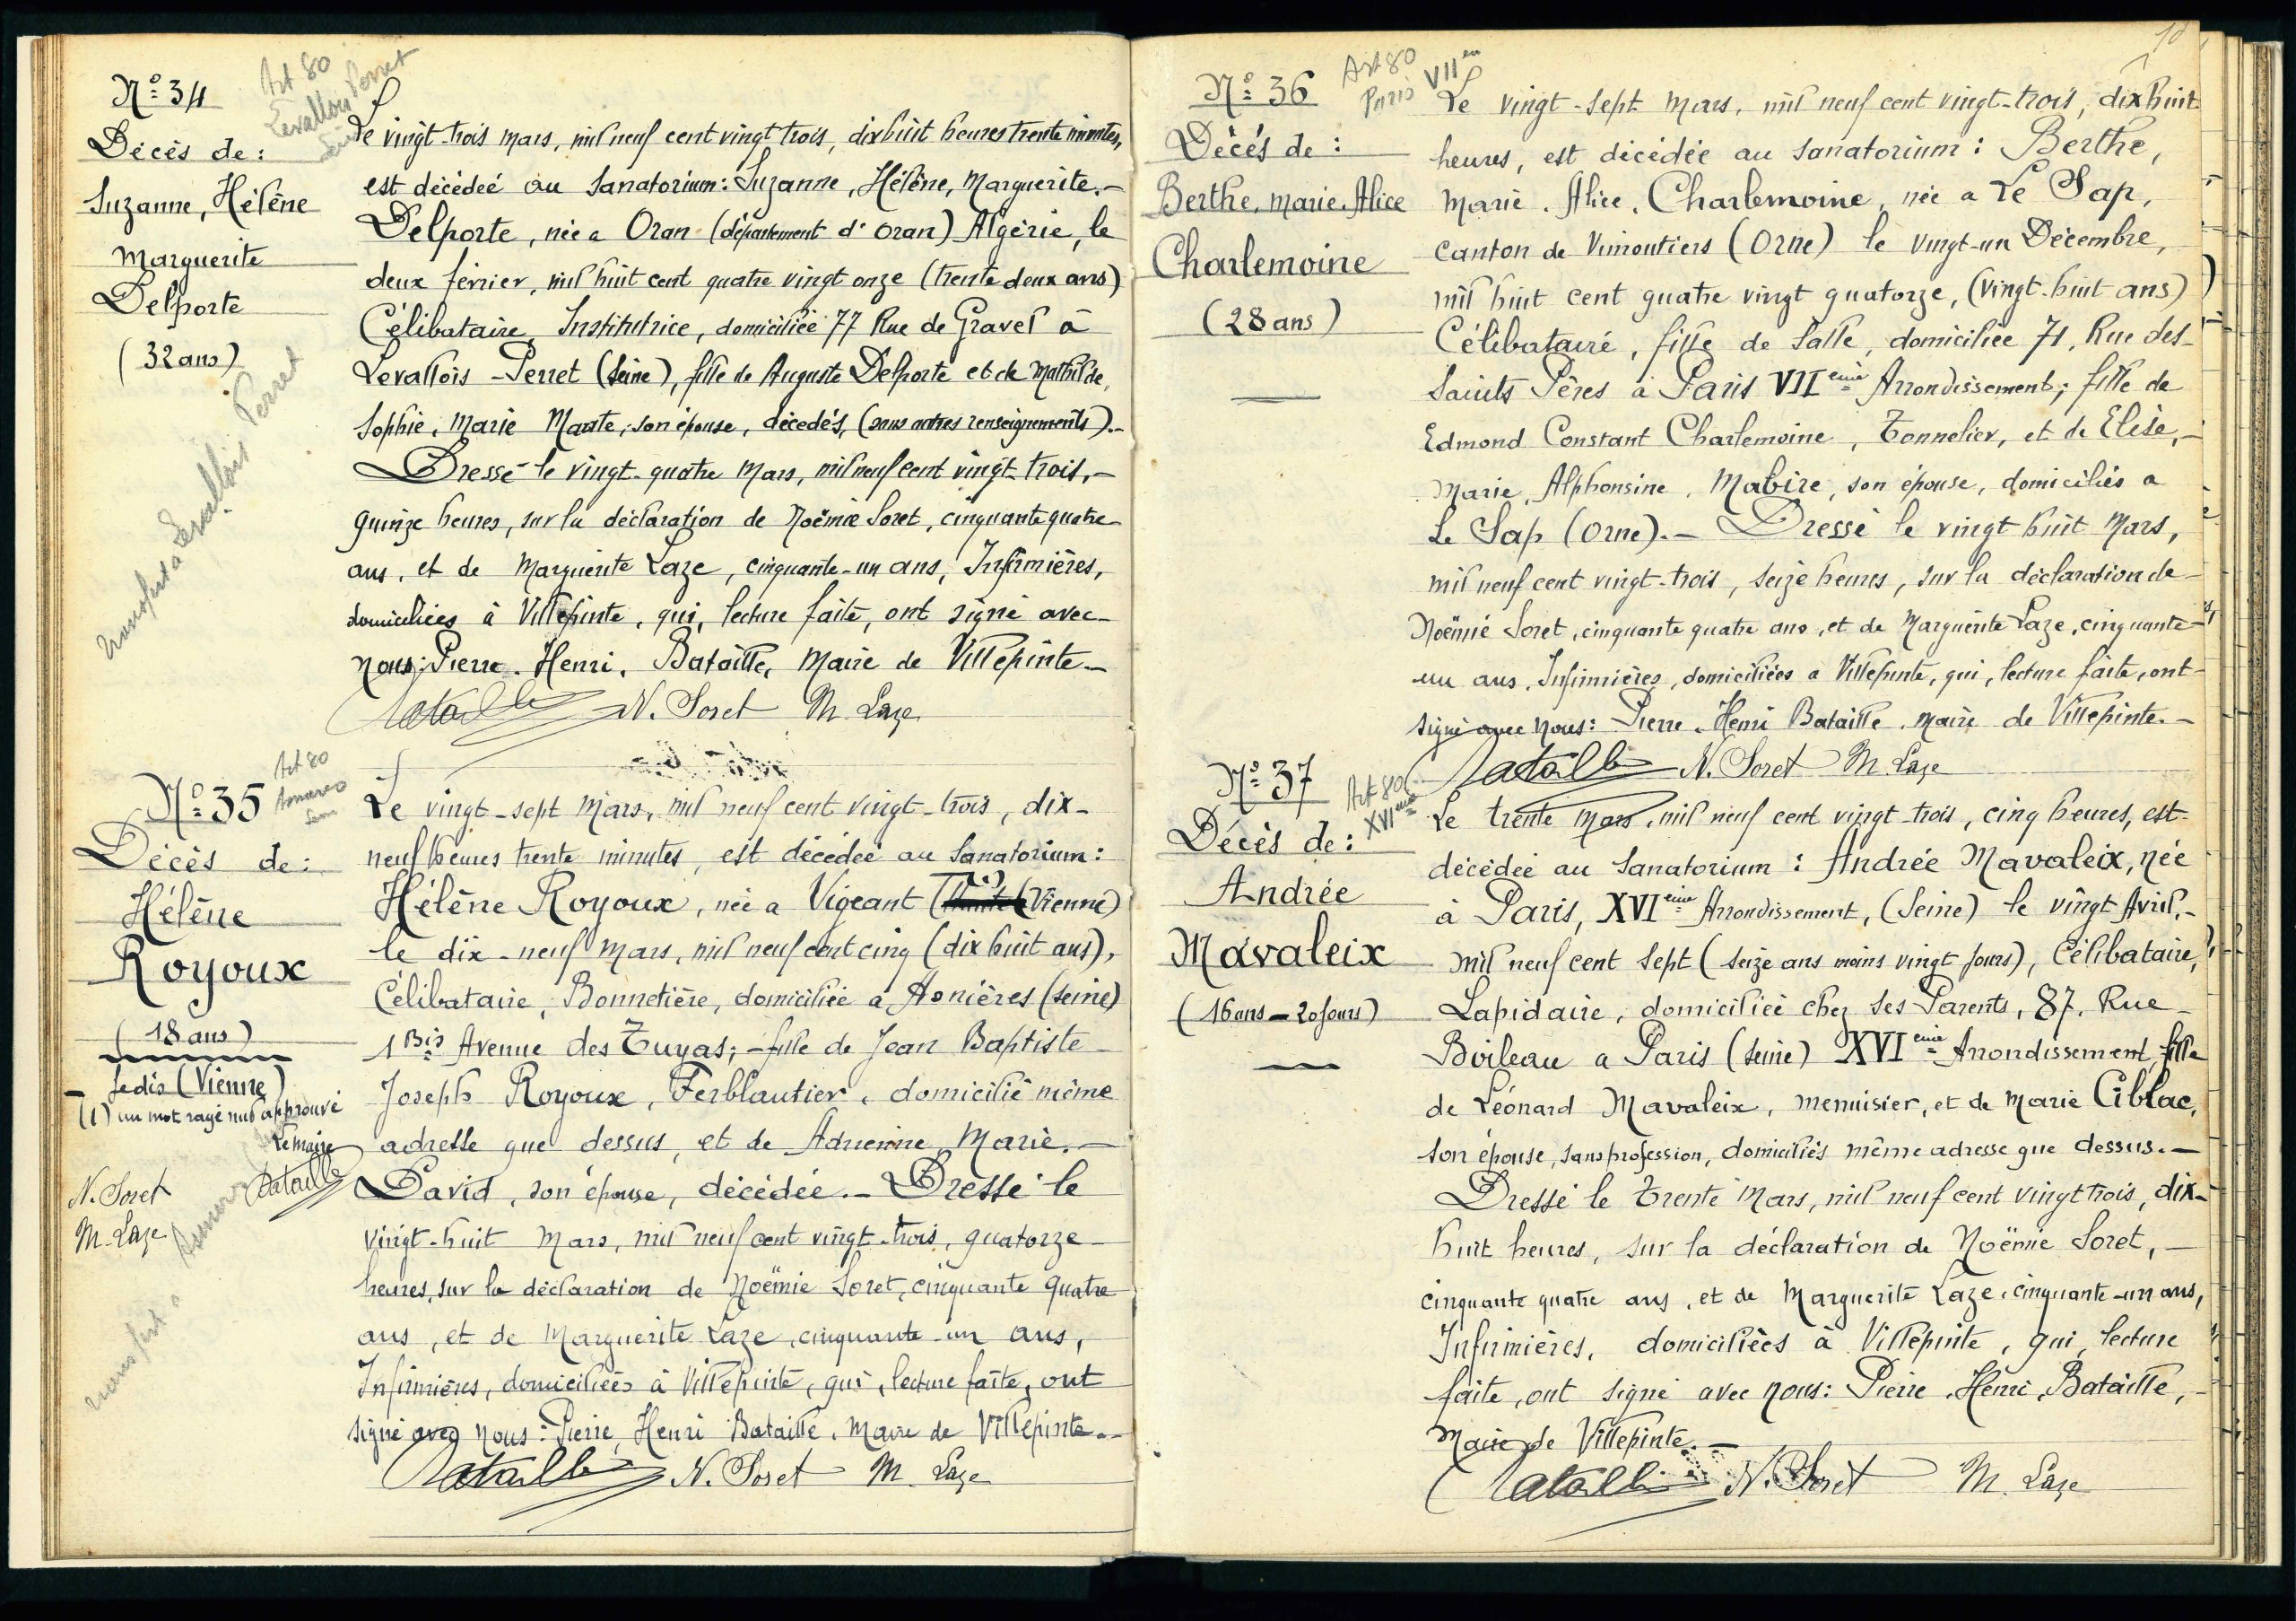 Nº 34
Art 80
Levallois Perret
Seine
Décès de:
Suzanne, Hélène
Marguerite
Delporte
(32 ans)
transfert à Levallois Perret
Le vingt-trois mars, mil neuf cent vingt trois, dix huit heures trente minutes,
est décédée au Sanatorium: Suzanne, Hélène, Marguerite.-
Delporte, née a Oran (département d'Oran) Algérie, le
deux février, mil huit cent quatre vingt onze (trente deux ans)
Célibataire, Institutrice, domiciliée 77 Rue de Gravel à
Levallois-Perret (Seine), fille de Auguste Delporte et de Mathilde,
Sophie, Marie Maate, son épouse, décédés, (sans autres renseignements).-
Dressé le vingt-quatre Mars, mil neuf cent vingt-trois,-
quinze heures, sur la déclaration de Noëmie Soret, cinquante quatre
ans, et de Marguerite Laze, cinquante-un ans, Infirmières,
domiciliées à Villepinte, qui, lecture faite, ont signé avec-
nous: Pierre. Henri. Bataille, Maire de Villepinte.-
Bataille N. Soret M. Laze
Nº 35
Art 80
Asnières
Seine
Décès de:
Hélène
Royoux
(18 ans)
Je dis (Vienne)
(1) un mot rayé nul approuvé
Le maire
Bataille
N. Soret
M. Laze
transfert a Asnières
Le vingt-sept Mars, mil neuf cent vingt-trois, dix-
neuf heures trente minutes, est décédée au Sanatorium:
Hélène Royoux, née a Vigeant (1) (Vienne)
le dix-neuf Mars, mil neuf cent cinq (dix huit ans),
Célibataire, Bonnetière, domiciliée a Asnières (Seine)
1 Bis Avenue des Tuyas; -fille de Jean Baptiste
Joseph Royoux, Ferblantier, domicilié même
adresse que dessus, et de Adrienne, Marie.-
David, son épouse, décédée.- Dressé le
vingt-huit Mars, mil neuf cent vingt-trois, quatorze
heures, sur la déclaration de Noëmie Soret, cinquante quatre
ans, et de Marguerite Laze, cinquante-un ans,
Infirmières, domiciliées à Villepinte, qui, lecture faite, ont
signé avec nous: Pierre, Henri Bataille, Maire de Villepinte.-
Bataille N. Soret M. Laze
10
Nº 36
Art 80
Paris VIIen
Décès de:
Berthe, Marie, Alice
Charlemoine
(28 ans)
Le vingt-sept Mars, mil neuf cent vingt-trois, dix huit
heures, est décédée au Sanatorium: Berthe,
Marie, Alice, Charlemoine, née a Le Sap,
canton de Vimoutiers (Orne) le vingt-un Décembre,
mil huit cent quatre vingt quatorze, (vingt-huit ans)
Célibataire, fille de Salle, domiciliée 71, Rue des-
Saints Pères à Paris VIIeme Arrondissement; fille de
Edmond Constant Charlemoine, Tonnelier, et de Elise,-
Marie, Alphonsine, Mabire, son épouse, domiciliés a
Le Sap (Orne).- Dressé le vingt huit Mars,
mil neuf cent vingt-trois, seize heures, sur la déclaration de-
Noëmie Soret, cinquante quatre ans, et de Marguerite Laze, cinquante-
un ans, Infirmières, domiciliées a Villepinte, qui, lecture faite, ont-
signé avec nous: Pierre. Henri Bataille. Maire de Villepinte.-
Bataille N. Soret M. Laze
Nº 37
Art 80
XVIeme
Décès de:
Andrée
Mavaleix
(16 ans - 20 jours)
Le trente Mars, mil neuf cent vingt-trois, cinq heures, est-
décédée au Sanatorium: Andrée Mavaleix, née
à Paris, XVIeme Arrondissement, (Seine) le vingt Avril,-
mil neuf cent sept (seize ans moins vingt jours), Célibataire,
Lapidaire, domiciliée chez ses Parents, 87, Rue-
Boileau a Paris (Seine) XVIeme Arrondissement, fille
de Léonard Mavaleix, menuisier, et de Marie Ciblac,
son épouse, sans profession, domiciliés même adresse que dessus.-
Dressé le trente Mars, mil neuf cent vingt trois, dix-
huit heures, sur la déclaration de Noëmie Soret,-
cinquante quatre ans, et de Marguerite Laze, cinquante-un ans,
Infirmières, domiciliées à Villepinte, qui, lecture
faite, ont signé avec nous: Pierre, Henri, Bataille,-
Maire de Villepinte.-
Bataille N. Soret M. Laze